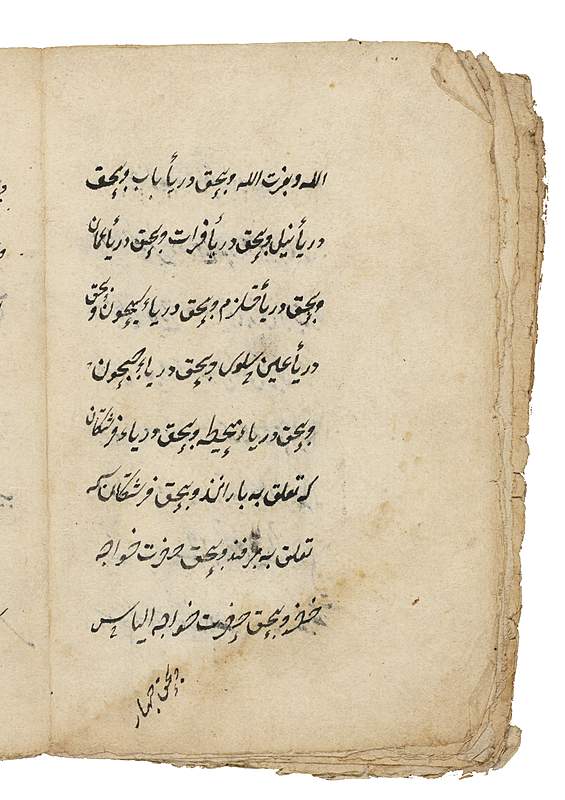 الله وبعزت الله وبحق دریأ باب وبحق
دریأ نیل وبحق دریأ فرات وبحق دریأ عمان
وبحق دریأ قلزم وبحق دریاء سیحون وبحق
دریأ عین سلوی وبحق دریاء جیحون
وبحق دریاء محیطه وبحق دریاء فرشتکان
که تعلق به باراند وبحق فرشتکان که
تعلق به برفند وبحق حضرت خواجه
خضر وبحق حضرت خواجه الیاس
وبحق چهار